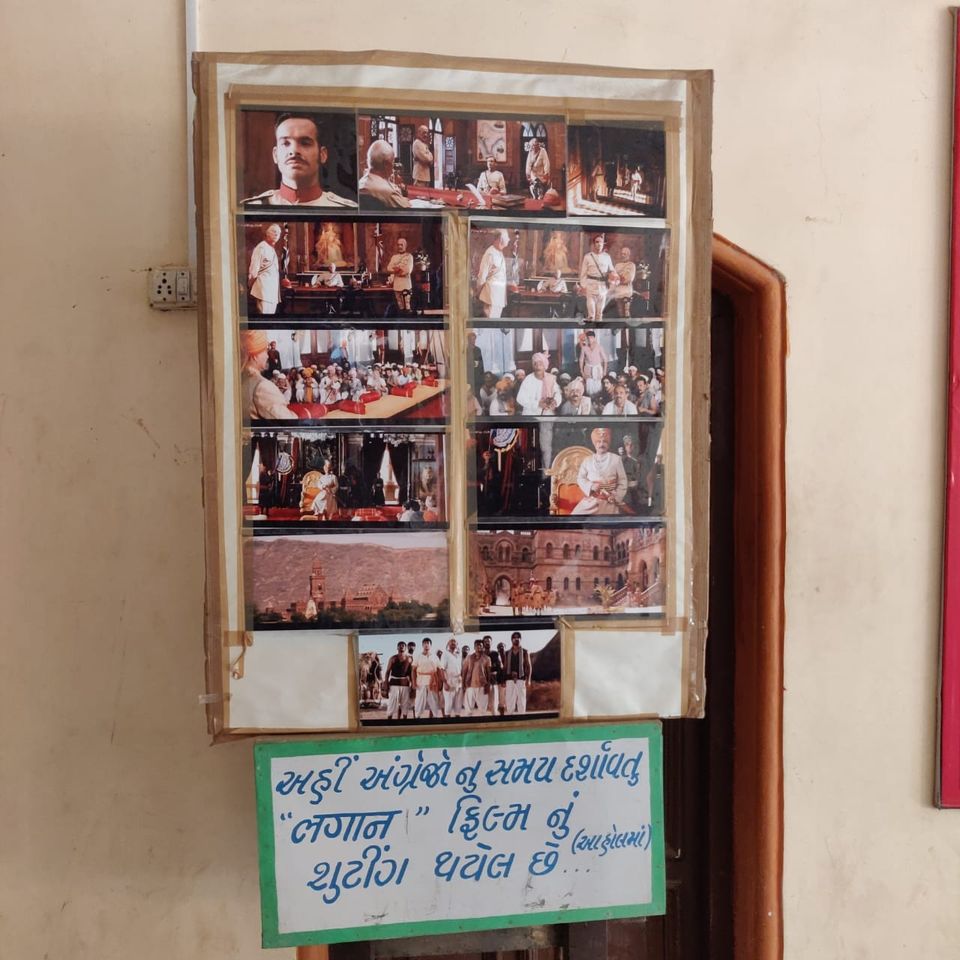 અહીં અંગ્રેજો નુ સમય દર્શાવતુ
"લગાન" ફિલ્મ નું
(આ હોલમાં)
શુટીંગ થયેલ છે...